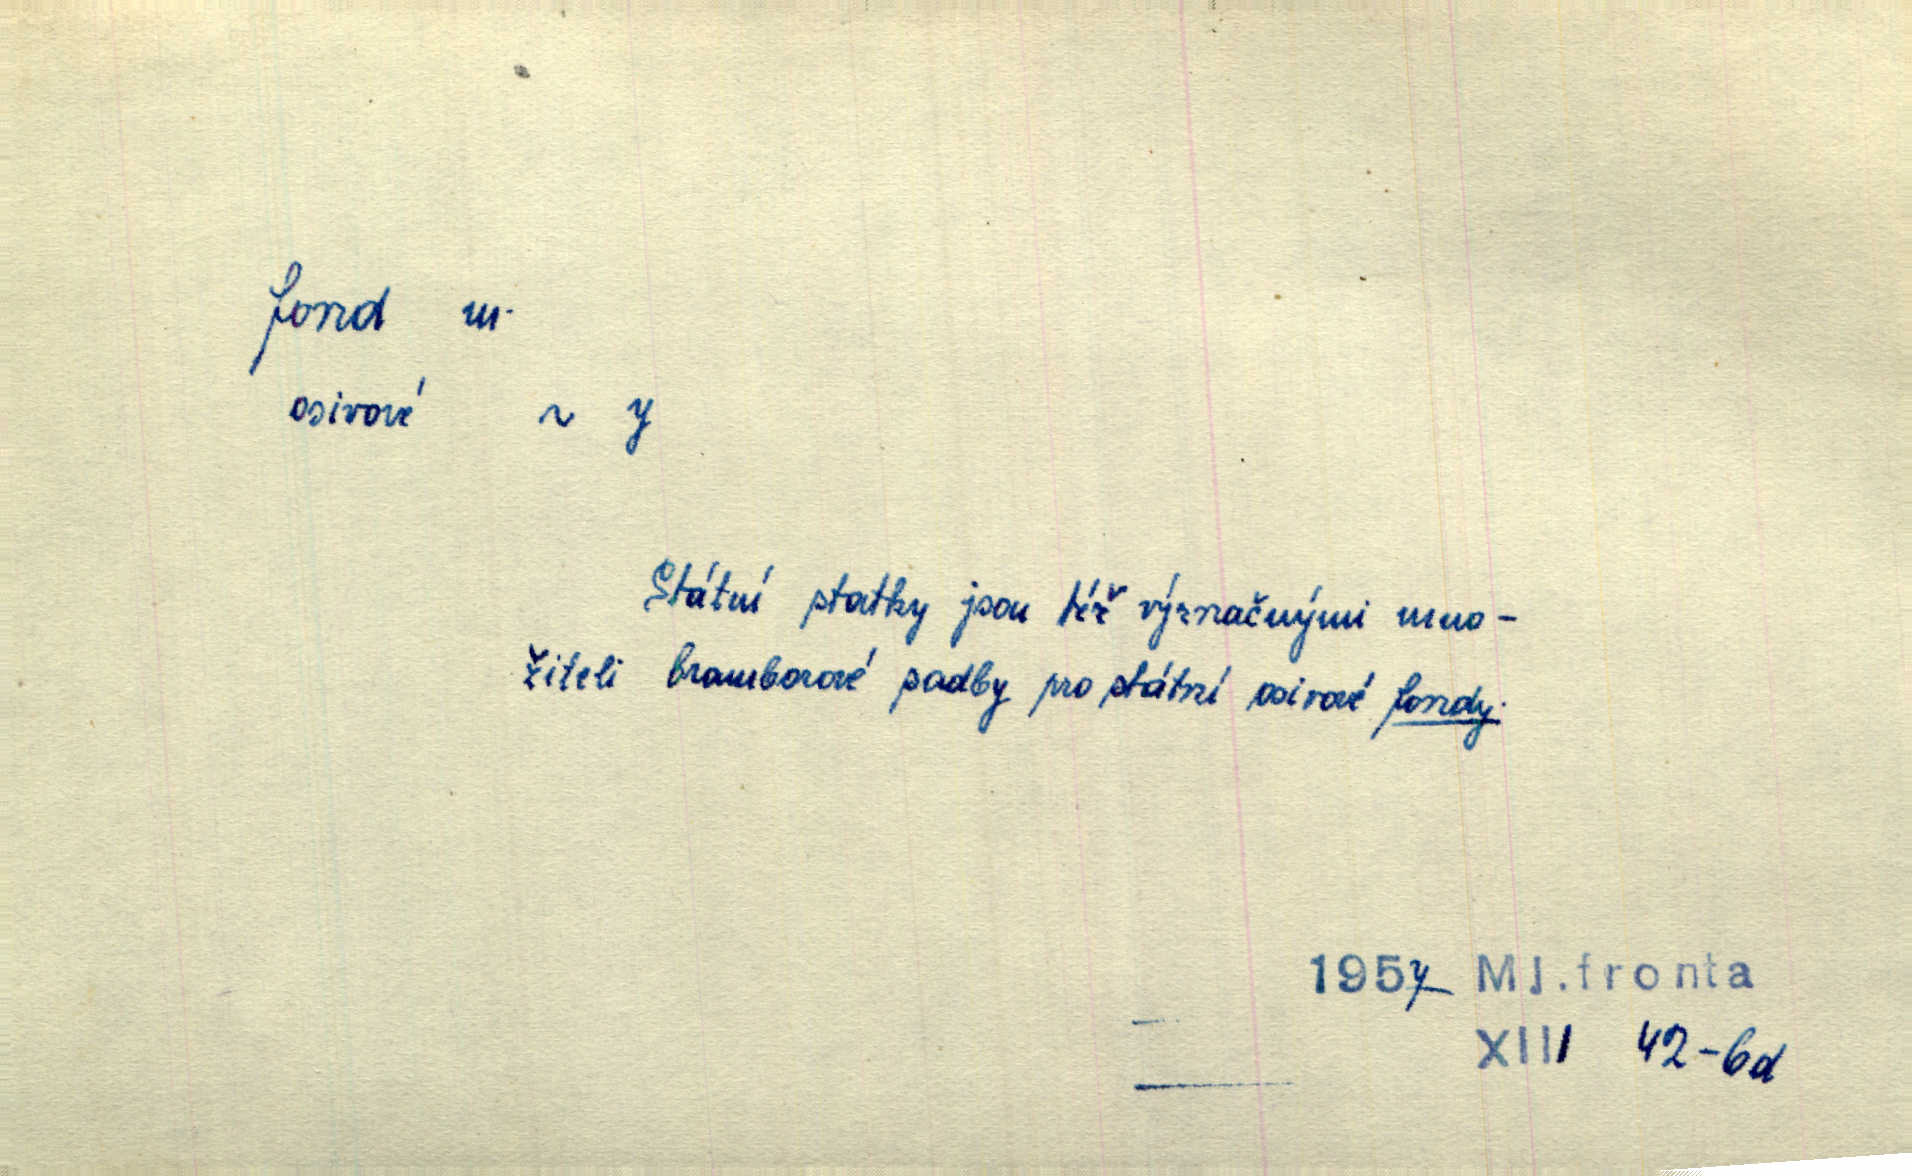 fond m.
osivové ~ y
Státní statky jsou též význačnými mno-
žiteli bramborové sadby pro státní osivové fondy.
1957 Ml.fronta
XIII 42-6d